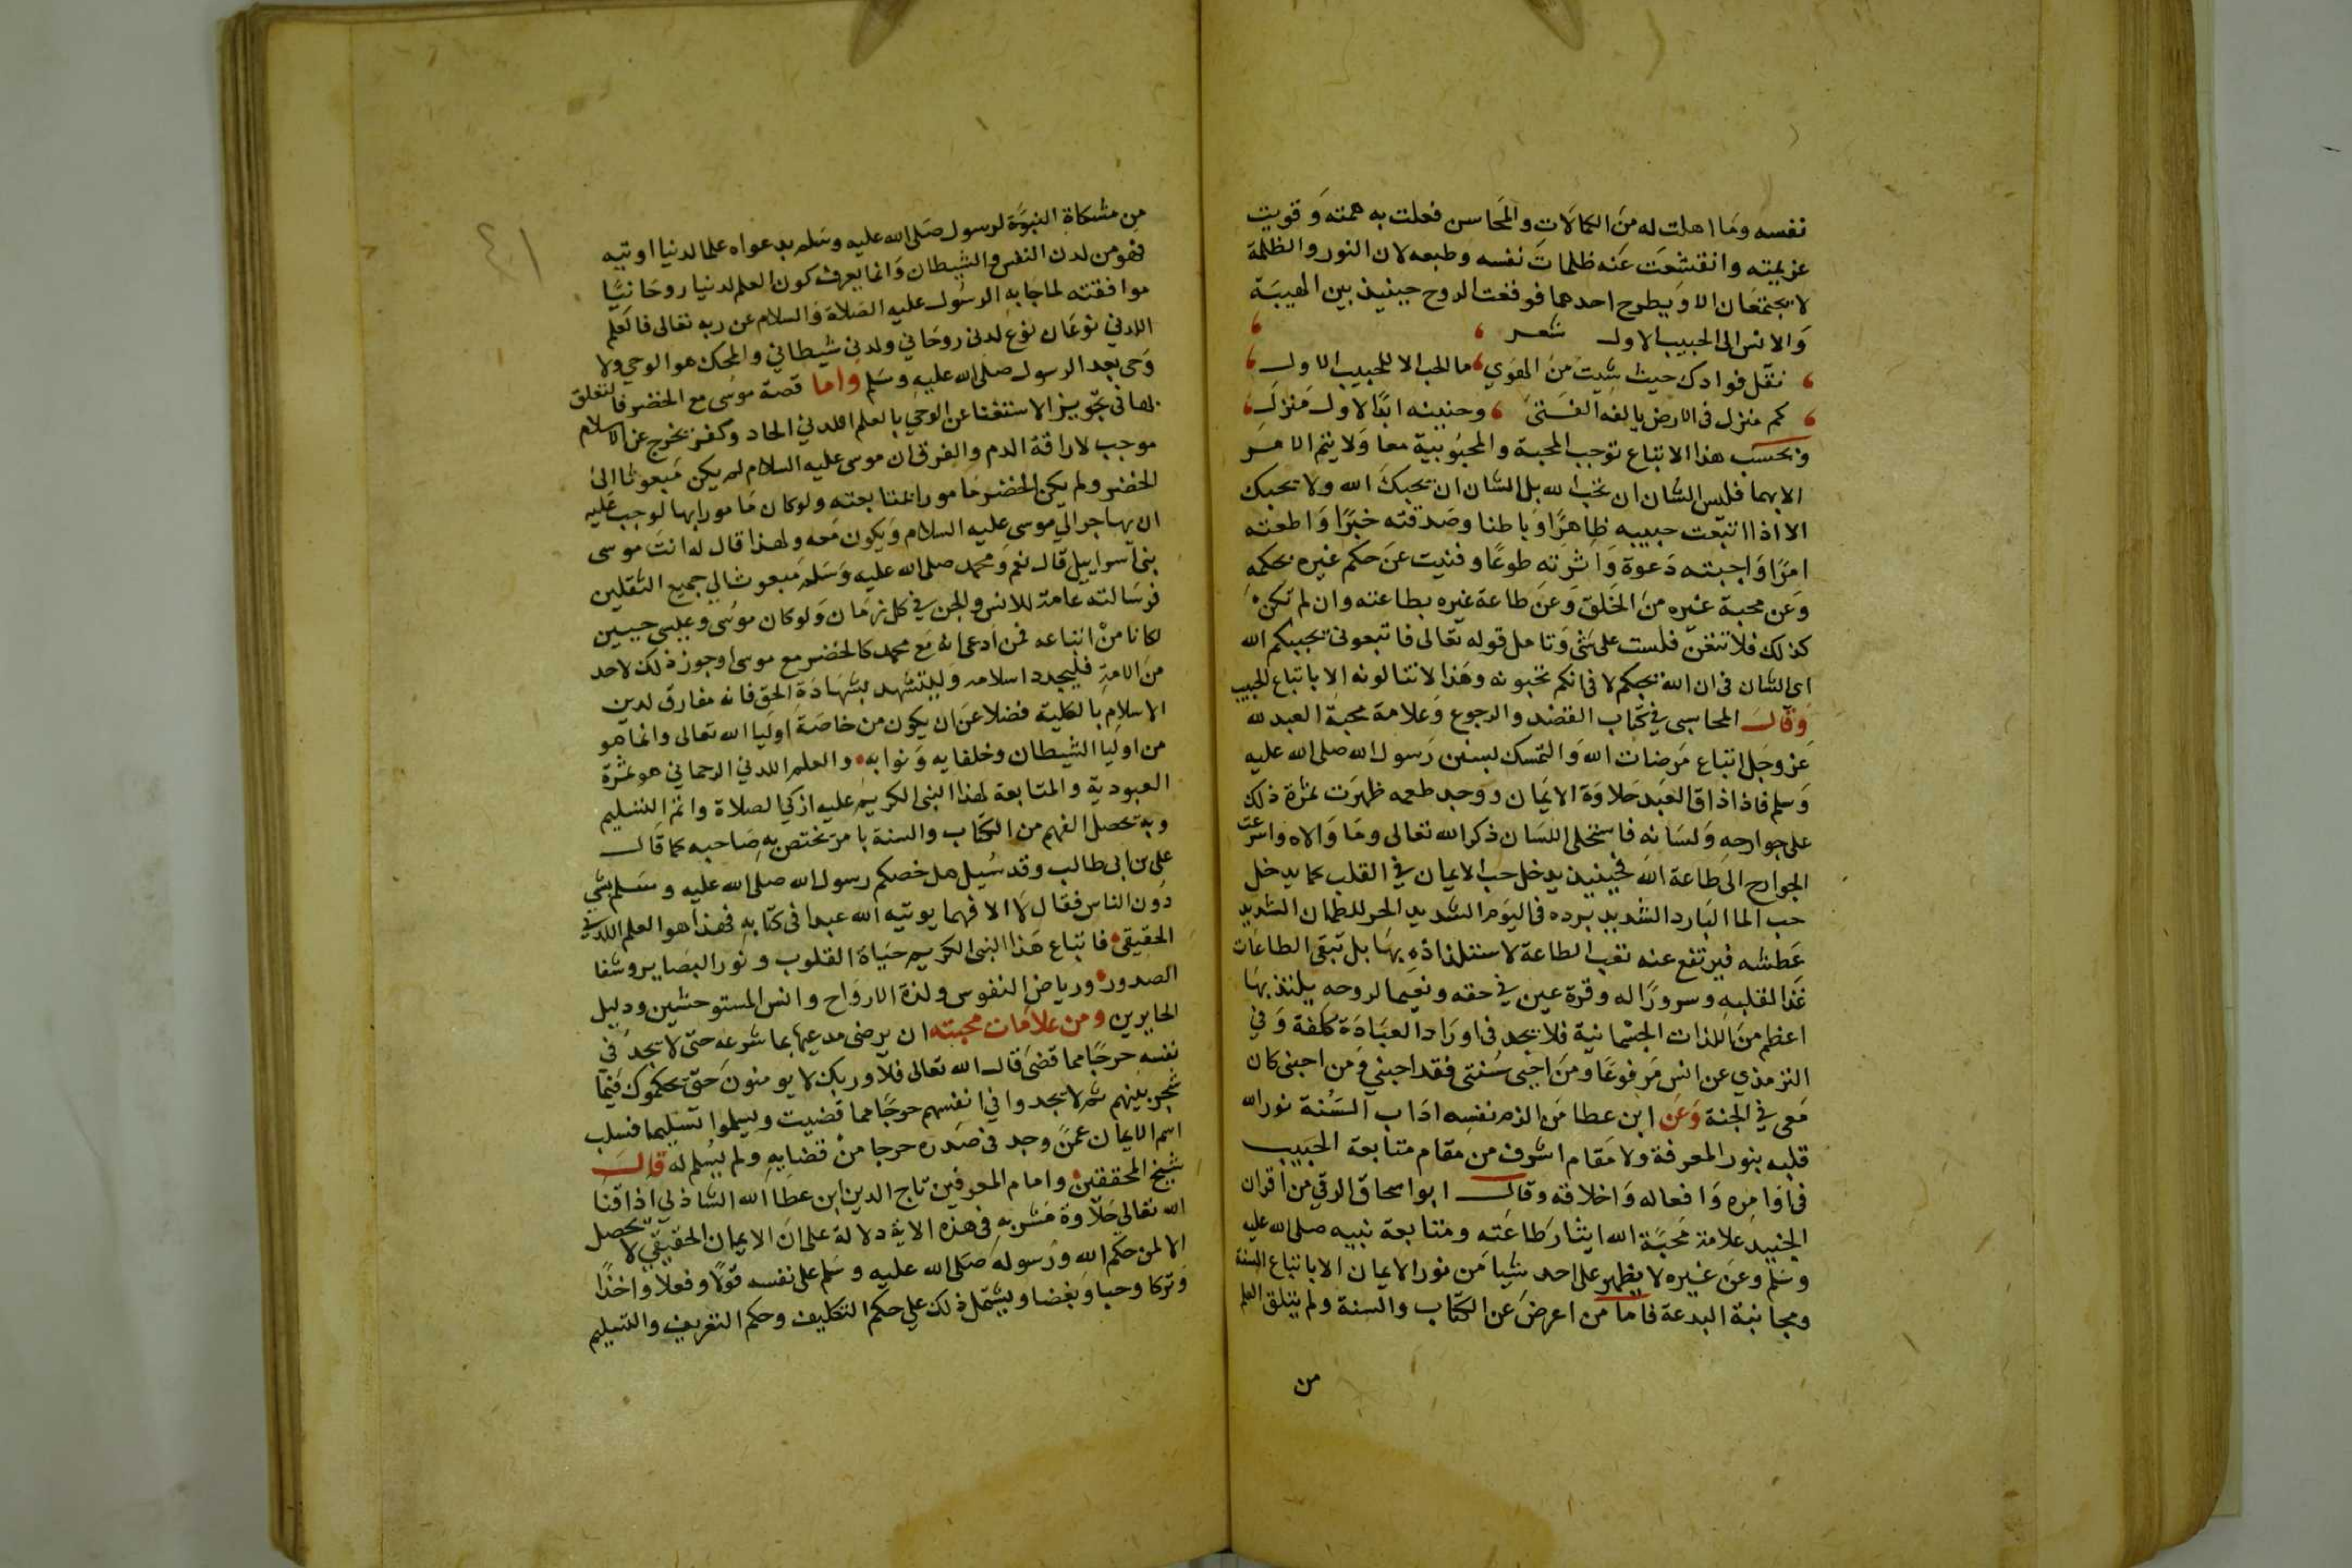 نفسه وما اهلت له من الكمالات والمحاسن فعلت به همته وقويت
عزيمته وانقشعت عنه ظلمات نفسه وطبعه لان النور والظلمة
لا يجتمعان الا ويطرح احدهما فوقعت الروح حينيذ بين الهيبة
والانس الى الحبيب الاول شعر
نقل فوادك حيث شيت من الهوي ما الحب الا للحبيب الاول
كم منزل في الارض يالفه الفتى وحنينه ابدا لاول منزل
وبحسب هذا الاتباع توجب المحبة والمحبوبية معا ولا يتم الامر
الا بهما فليس الشان ان تحب الله بل الشان ان يحبك الله ولا يحبك
الا اذا اتبعت حبيبه ظاهرا وباطنا وصدقته خبرا واطعته
امرا واجبته دعوة واثرته طوعا وفنيت عن حكم غيره بحكمه
وعن محبة غيره من الخلق وعن طاعة غيره بطاعته وان لم تكن
كذلك فلا تتعن فلست على شي وتامل قوله تعالى فاتبعوني يحببكم الله
اي الشان في ان الله يحبكم لا في انكم تحبونه وهذا لا تنالونه الا باتباع الحبيب
وقال المحاسبي في كتاب القصد والرجوع وعلامة محبة العبد لله
عز وجل اتباع مرضات الله والتمسك بسنن رسول الله صلى الله عليه
وسلم فاذا ذاق العبد حلاوة الايمان ووجد طعمه ظهرت ثمرة ذلك
على جوارحه ولسانه فاستحلى اللسان ذكر الله تعالى وما والاه واسرعت
الجوارح الى طاعة الله فحينيذ يدخل حب الايمان في القلب كما يدخل
حب الما البارد الشديد برده في اليوم الشديد الحر للظمان الشديد
عطشه فيرتفع عنه تعب الطاعة لاستلذاذه بها بل تبقى الطاعات
غذا لقلبه وسرورا له وقرة عين في حقه ونعيما لروحه يلتذ بها
اعظم من اللذات الجسمانية فلا يجد في اوراد العبادة كلفة وفي
الترمذي عن انس مرفوعا ومن احيى سنتي فقد احبني ومن احبني كان
معي في الجنة وعن ابن عطا من الزم نفسه اداب السنة نور الله
قلبه بنور المعرفة ولا مقام اشرف من مقام متابعة الحبيب
في اوامره وافعاله واخلاقه وقال ابو اسحاق الرقي من اقران
الجنيد علامة محبة الله ايثار طاعته ومتابعة نبيه صلى الله عليه
وسلم وعن غيره لا يظهر على احد شيا من نور الايمان الا باتباع السنة
ومجانبة البدعة فاما من اعرض عن الكتاب والسنة ولم يتلق العلم
من
من مشكاة النبوة لرسول صلى الله عليه وسلم بدعواه علما لدنيا اوتيه
فهو من لدن النفس والشيطان وانما يعرف كون العلم لدنيا روحانيا
موافقته لما جا به الرسول عليه الصلاة والسلام عن ربه تعالى فالعلم
اللدني نوعان نوع لدني روحاني ولدني شيطاني والمحك هو الوحي ولا
وحي بعد الرسول صلى الله عليه وسلم واما قصة موسى مع الخضر فالتعلق
بها في تجويز الاستغنا عن الوحي بالعلم اللدني الحاد وكفر يخرج عن الاسلام
موجب لاراقة الدم والفرق ان موسى عليه السلام لم يكن مبعوثا الى
الخضر ولم يكن الخضر مامورا بمتابعته ولو كان مامورا بها لوجب عليه
ان يهاجر الي موسى عليه السلام ويكون معه ولهذا قال له انت موسى
بني اسراييل قال نعم ومحمد صلى الله عليه وسلم مبعوث الي جميع الثقلين
فرسالته عامة للانس والجن في كل زمان ولو كان موسى وعيسى حيين
لكانا من اتباعه فمن ادعى انه مع محمد كالخضر مع موسى او جوز ذلك لاحد
من الامة فليجدد اسلامه وليتشهد بشهادة الحق فانه مفارق لدين
الاسلام بالكلية فضلا عن ان يكون من خاصة اوليا الله تعالى وانما هو
من اوليا الشيطان وخلفايه ونوابه والعلم اللدني الرحماني هو ثمرة
العبودية والمتابعة لهذا النبي الكريم عليه ازكي الصلاة واتم التسليم
وبه تحصل الفهم من الكتاب والسنة بامر يختص به صاحبه كما قال
علي بن ابي طالب وقد سيل هل خصكم رسول الله صلى الله عليه وسلم بشي
دون الناس فقال لا الا فهما يوتيه الله عبدا في كتابه فهذا هو العلم اللدني
الحقيقي فاتباع هذا النبي الكريم حياة القلوب ونور البصاير وشفا
الصدور ورياض النفوس ولذة الارواح وانس المستوحشين ودليل
الحايرين ومن علامات محبته ان يرضى مدعيها بما شرعه حتى لا يجد في
نفسه حرجا مما قضى قال الله تعالى فلا وربك لا يومنون حتى يحكموك فيما
شجر بينهم ثم لا يجدوا في انفسهم حرجا مما قضيت ويسلموا تسليما فسلب
اسم الايمان عمن وجد في صدره حرجا من قضايه ولم يسلم له قال
شيخ المحققين وامام المعرفين تاج الدين ابن عطا الله الشاذلي اذاقنا
الله تعالي حلاوة مشربه في هذه الاية دلالة على ان الايمان الحقيقي لا يحصل
الا لمن حكم الله ورسوله صلى الله عليه وسلم على نفسه قولا وفعلا واخذا
وتركا وحبا وبغضا ويشتمل ذلك علي حكم التكليف وحكم التعريف والتسليم